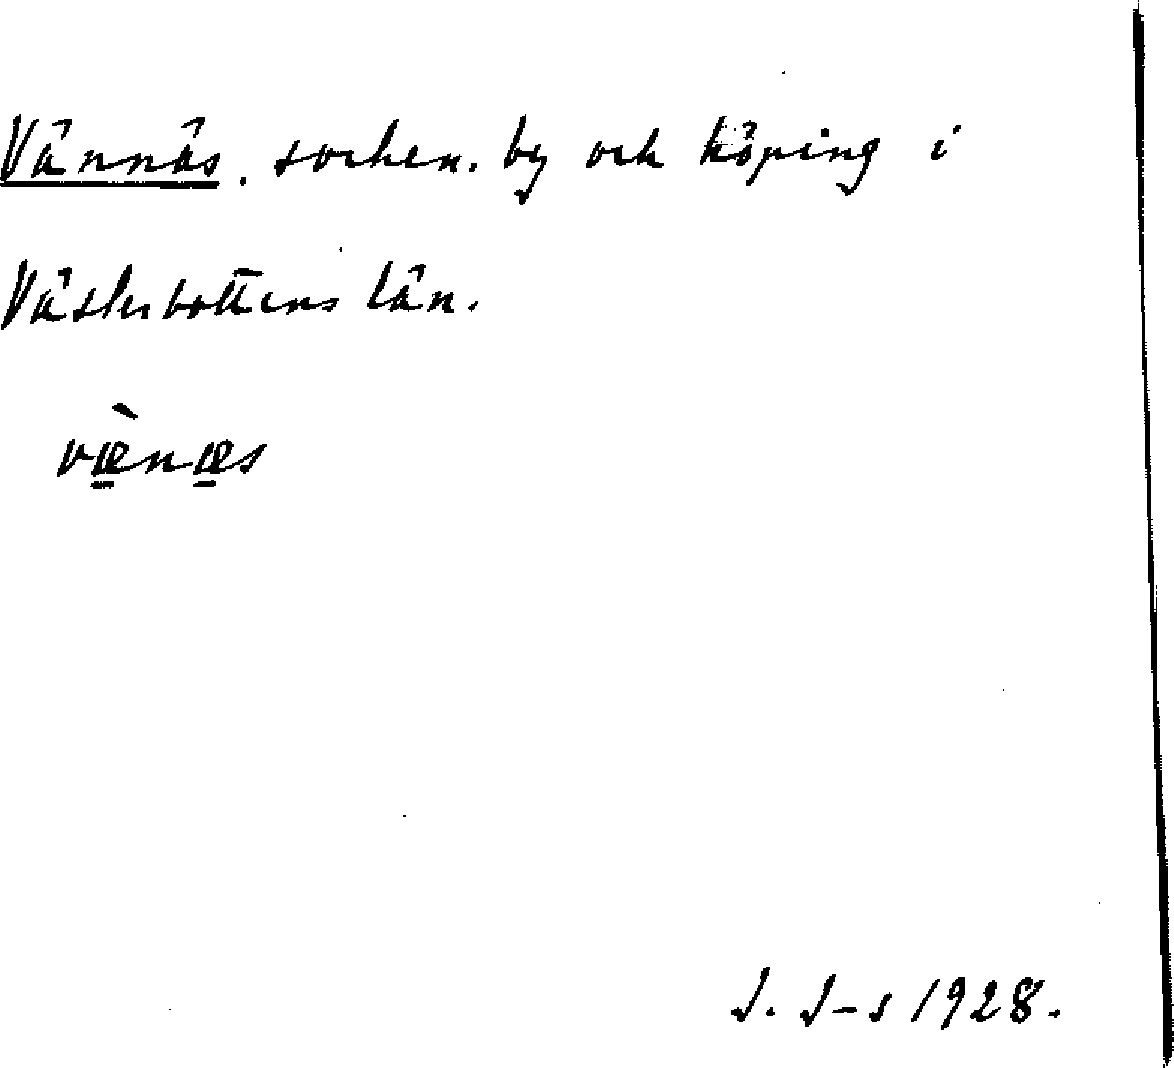 Vännäs, socken, by och köping i
Västerbottens län.
væ̠̀næ̠s
J. J-s 1928.